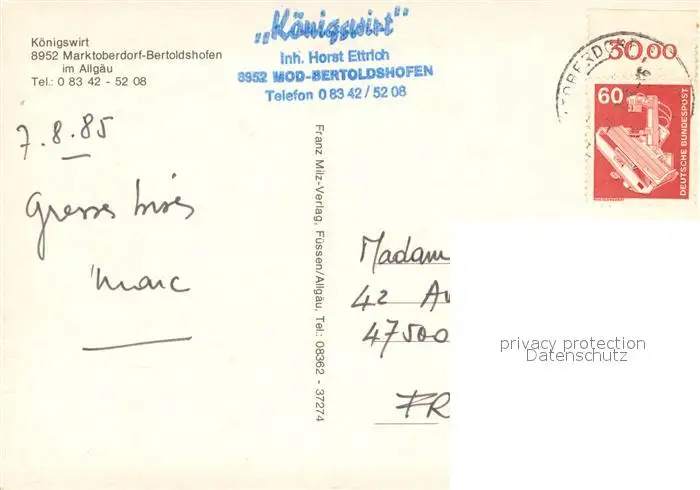 Königswirt
8952 Marktoberdorf-Bertoldshofen
im Allgäu
Tel.: 0 83 42 - 52 08
„Königswirt“
Inh. Horst Ettrich
8952 MOD-BERTOLDSHOFEN
Telefon 0 83 42 / 52 08
50,00
60
DEUTSCHE BUNDESPOST
7.8.85
Grosses bises
Marc
Franz Milz-Verlag, Füssen/Allgäu, Tel.: 08362 - 37274
Madam
42 Av
47500
FR
privacy protection
Datenschutz